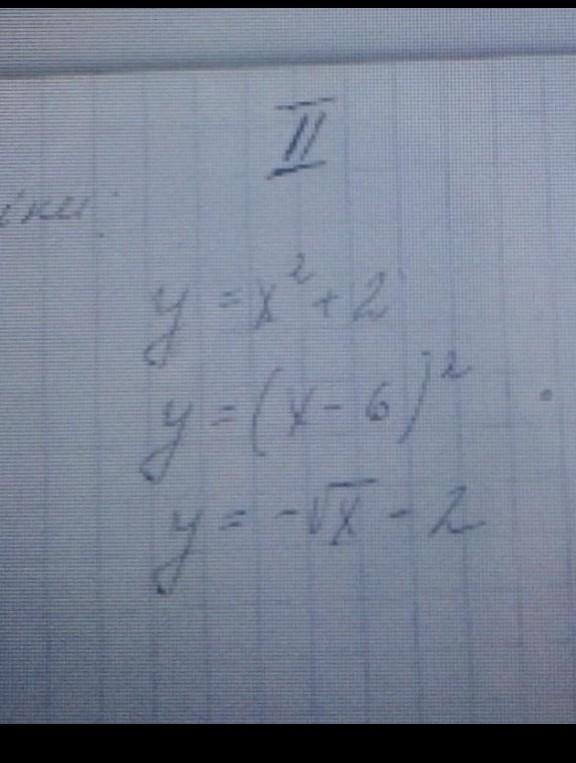 II
іки:
y = x² + 2
y = (x - 6)²
y = -√x - 2